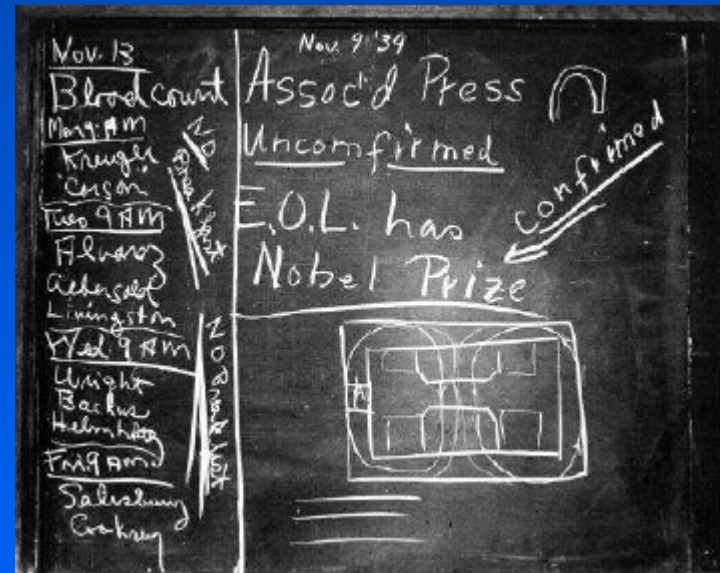 Nov. 13
Blood count
Mon 9 AM
Kruger
Corson
Tues 9 AM
Alvarez
Aebersold
Livingston
Wed. 9 AM
Wright
Backus
Helmholz
Fri 9 AM
Salisbury
NO Breakfast
NO Breakfast
Nov. 9 '39
Assoc'd Press
Uncomfirmed
E.O.L. has
Nobel Prize
confirmed